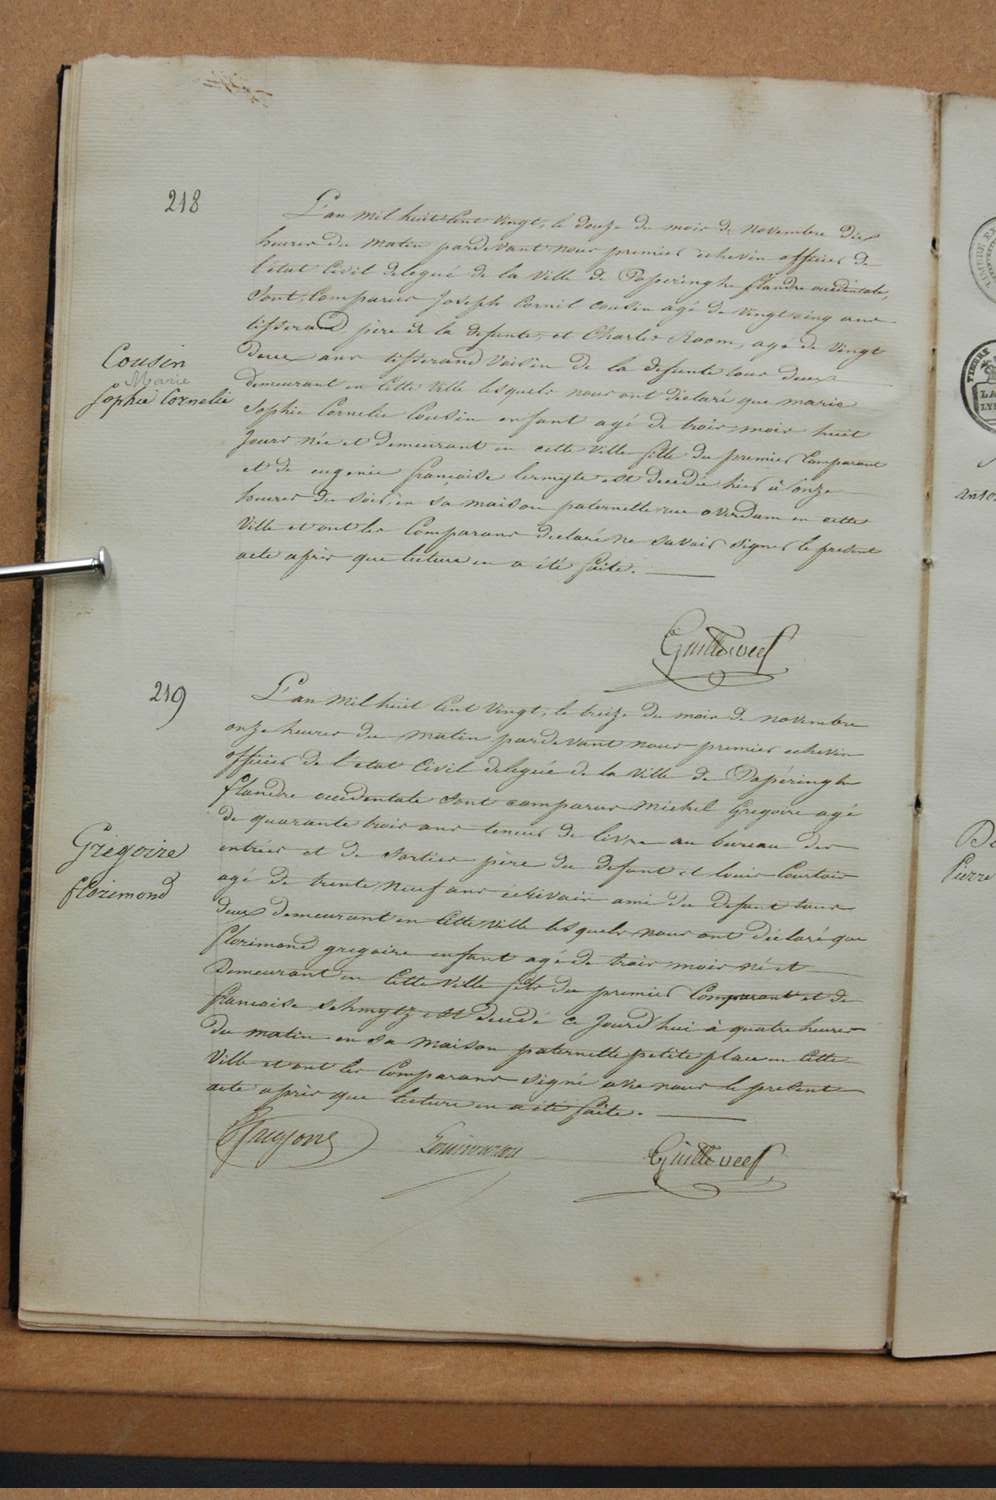 218
L'an mil huit cent vingt, le douze du mois de novembre dix
heures du matin pardevant nous premier echevin officier de
l'état civil delegué de la ville de Poperinghe flandre occidentale,
sont comparus Joseph Cornil Cousin agé de vingt cinq ans
tisserand père de la defunte, et Charles Room, agé de vingt
deux ans tisserand voisin de la defunte tous deux
demeurant en cette ville lesquels nous ont déclaré que marie
Sophie Cornelie Cousin enfant agé de trois mois huit
jours née et demeurant en cette ville fille du premier comparant
et de eugenie françoise Lermyte est decedée hier à onze
heures du soir en sa maison paternelle rue overdam en cette
ville et ont les comparans declaré ne savoir signer le present
acte après que lecture en a été faite.
Cousin
Marie
Sophie Cornelie
219
L'an mil huit cent vingt, le treize du mois de novembre
onze heures du matin pardevant nous premier echevin
officier de l'etat civil deleguée de la ville de Popéringhe
flandre occidentale sont comparus Michel Gregoire agé
de quarante trois ans teneur de livre au bureau des
entrées et de sorties père du defunt et louis Courtois
agé de trente neuf ans écrivain ami du defunt tous
deux demeurant en cette ville lesquels nous ont déclaré que
florimond gregoire enfant agé de trois mois né et
demeurant en cette ville fils du premier comparant et de
francoise schmytz est decedé ce jourd'hui à quatre heures
du matin en sa maison paternelle petite place en cette
ville et ont les comparans signé avec nous le present
acte après que lecture en a été faite.
Grégoire
florimond